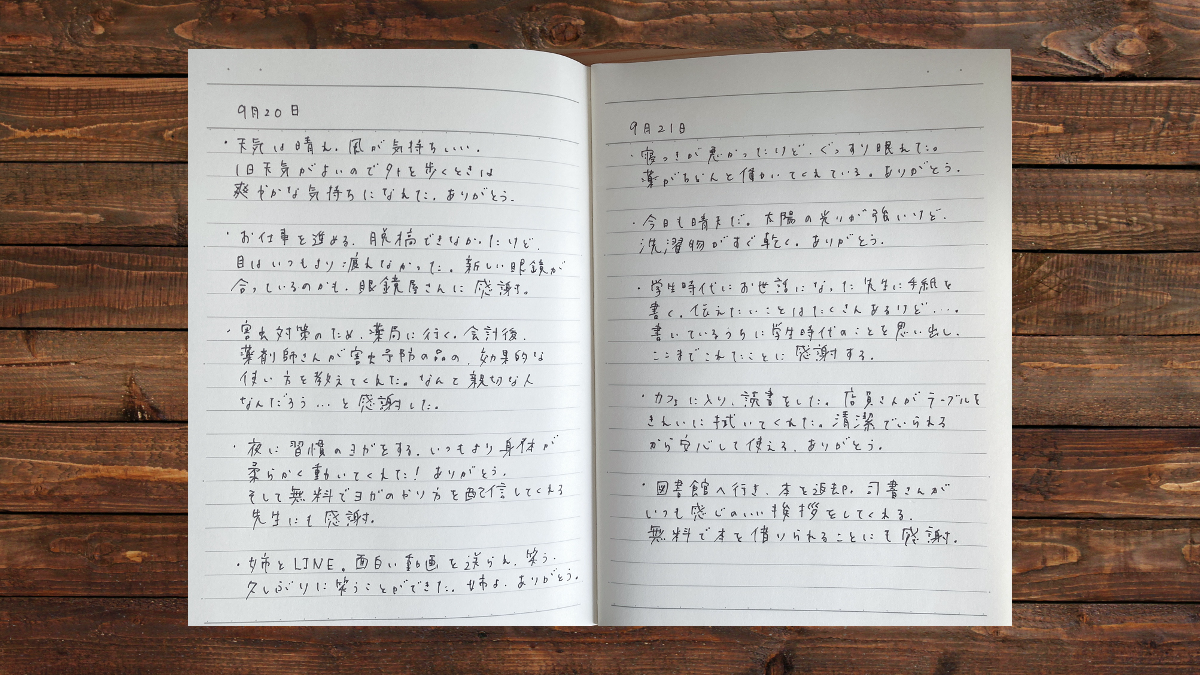 9月20日
・天気は晴れ、風が気持ちいい。
1日天気がよいので外を歩くときは
爽やかな気持ちになれた。ありがとう。
・お仕事を進める。脱稿できなかったけど、
目はいつもより疲れなかった。新しい眼鏡が
合っているのかも。眼鏡屋さんに感謝。
・害虫対策のため、薬局に行く。会計後、
薬剤師さんが害虫予防の品の、効果的な
使い方を教えてくれた。なんて親切な人
なんだろう…と感謝した。
・夜に習慣のヨガをする。いつもより身体が
柔らかく動いてくれた！ありがとう。
そして無料でヨガのやり方を配信してくれる
先生にも感謝。
・姉とLINE。面白い動画を送られ、笑う。
久しぶりに笑うことができた。姉よ、ありがとう。
9月21日
・寝つきが悪かったけど、ぐっすり眠れた。
薬がちゃんと働いてくれている。ありがとう。
・今日も晴れだ。太陽の光りが強いけど、
洗濯物がすぐ乾く。ありがとう。
・学生時代にお世話になった先生に手紙を
書く。伝えたいことはたくさんあるけど…。
書いているうちに学生時代のことを思い出し、
ここまでこれたことに感謝する。
・カフェに入り、読書をした。店員さんがテーブルを
きれいに拭いてくれた。清潔でいられる
から安心して使える。ありがとう。
・図書館へ行き、本を返却。司書さんが
いつも感じのいい挨拶をしてくれる。
無料で本を借りられることにも感謝。